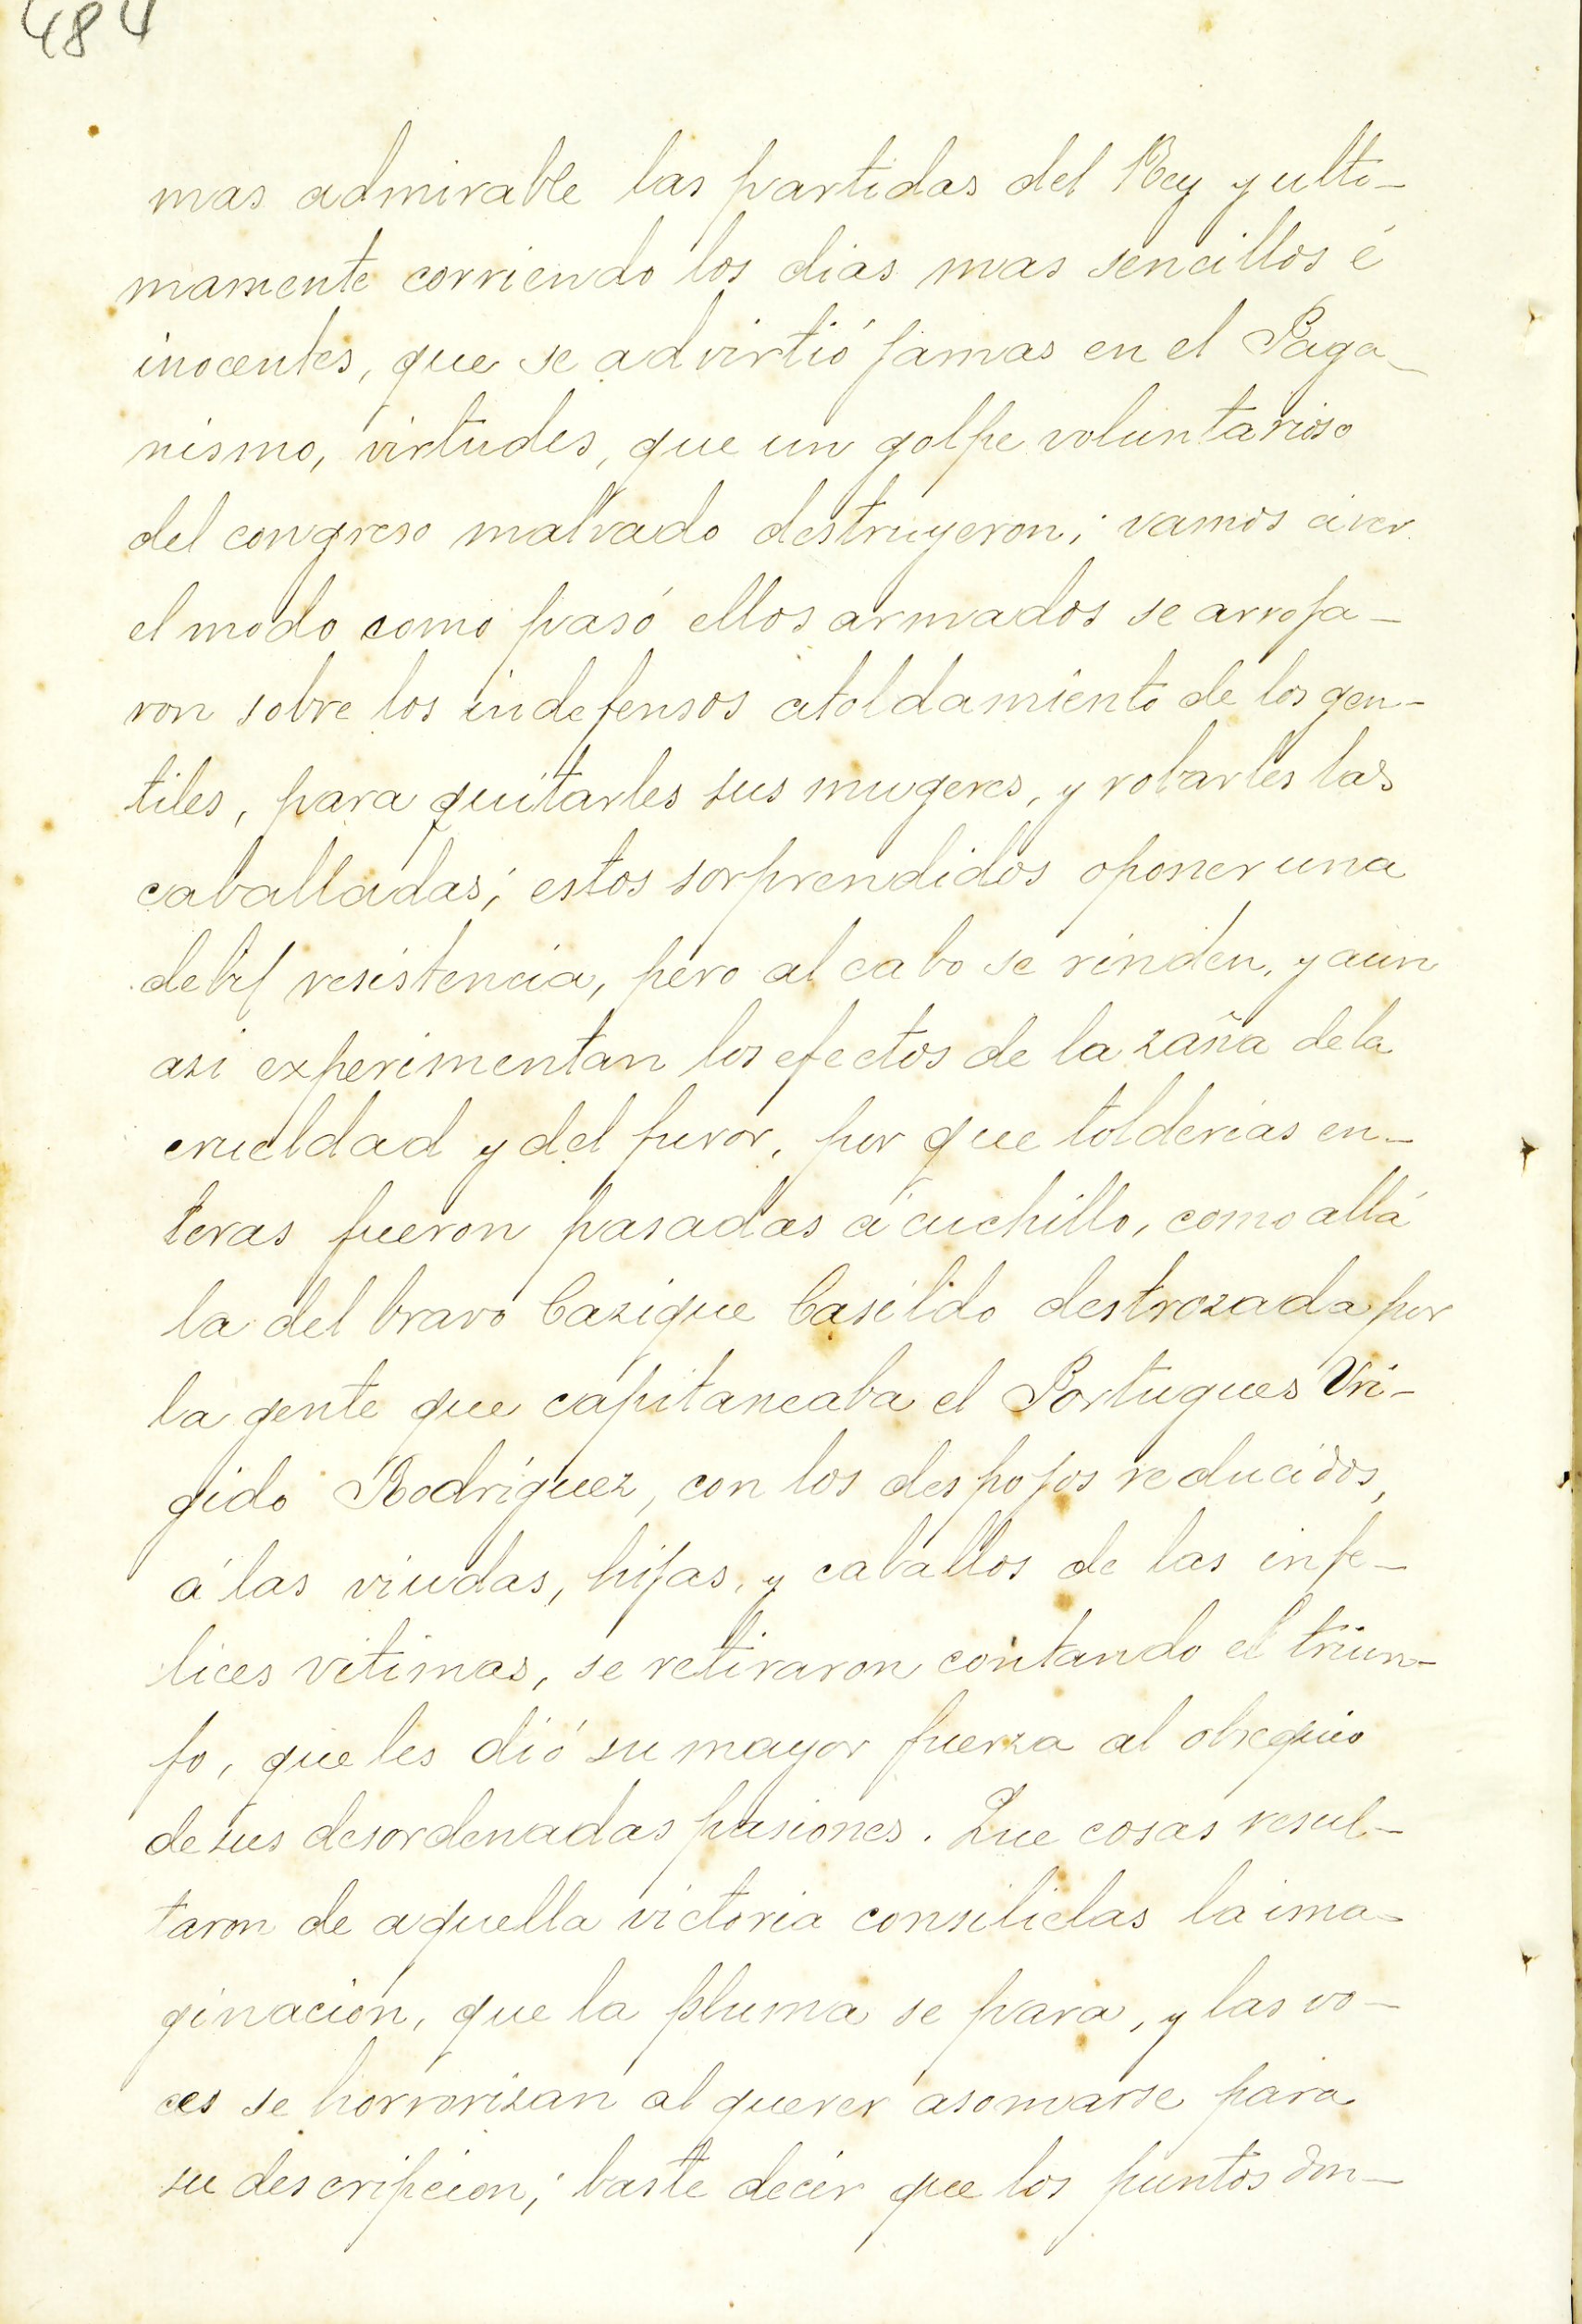 484
mas admirable las partidas del Rey y ulti-
mamente corriendo los dias mas sencillos é
inocentes, que se advirtió jamas en el Paga-
nismo, virtudes, que un golpe voluntarioso
del congreso malvado destruyeron; vamos á ver
el modo como pasó ellos armados se arroja-
ron sobre los indefensos atoldamiento de los gen-
tiles, para quitarles sus mugeres, y robarles las
caballadas; estos sorprendidos oponer una
debil resistencia, pero al cabo se rinden, y aun
asi experimentan los efectos de la zaña de la
crueldad y del furor, por que tolderias en-
teras fueron pasadas á cuchillo, como allá
la del bravo Cazique Casildo destrozada por
la gente que capitaneaba el Portugues Vri-
gido Rodríguez, con los despojos reducidos,
á las viudas, hijas, y caballos de las infe-
lices vitimas, se retiraron contando el triun-
fo, que les dió su mayor fuerza al obsequio
de sus desordenadas pasiones. Que cosas resul-
taron de aquella victoria consilielas la ima-
ginacion, que la pluma se para, y las vo-
ces se horrorizan al querer asomarse para
su descripcion; baste decir que los puntos don-